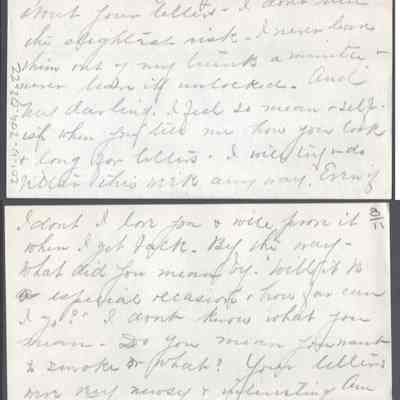 about your letters. I don't run
the slightest risk. I never leave
them out of my trunk a minute &
never leave it unlocked. And
dear darling. I feel so mean & self-
ish when you tell me how you look
& long for letters. I will try & do
better this week any way. Even if
I dont I love you & will prove it
when I get back. By the way -
What did you mean by "Will it be
a especial occasion & how far can
I go?" I don't know what you
mean. Do you mean you want
to smoke or what? Your letters
were very newsy & interesting